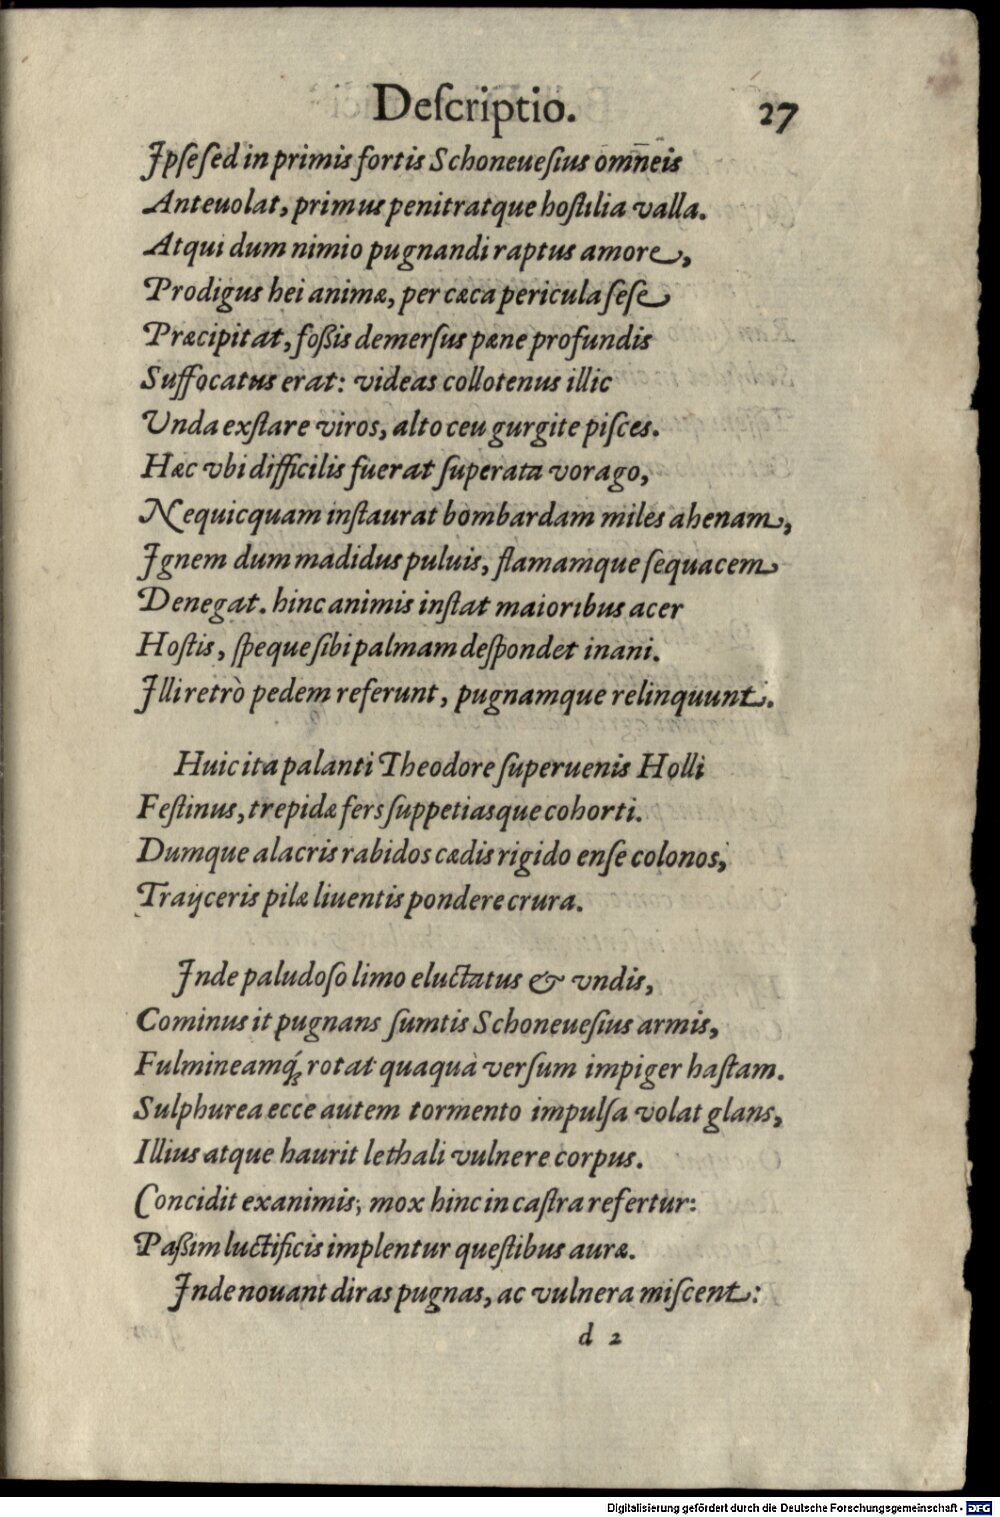 Deſcriptio. 27
Ipſe ſed in primis fortis Schoneueſius omn̄eis
Anteuolat, primus penitratque hoſtilia valla.
Atqui dum nimio pugnandi raptus amore,
Prodigus hei animæ, per cæca pericula ſeſe
Præcipitat, foßis demerſus pæne profundis
Suffocatus erat: videas collotenus illic
Unda exſtare viros, alto ceu gurgite piſces.
Hæc vbi difficilis fuerat ſuperata vorago,
Nequicquam inſtaurat bombardam miles ahenam,
Ignem dum madidus puluis, flamamque ſequacem
Denegat. hinc animis inſtat maioribus acer
Hoſtis, ſpeque ſibi palmam deſpondet inani.
Illi retrò pedem referunt, pugnamque relinquunt.
Huic ita palanti Theodore ſuperuenis Holli
Feſtinus, trepidæ fers ſuppetiasque cohorti.
Dumque alacris rabidos cædis rigido enſe colonos,
Traijceris pilæ liuentis pondere crura.
Inde paludoſo limo eluctatus & vndis,
Cominus it pugnans ſumtis Schoneueſius armis,
Fulmineamq́ꝫ rotat quaquà verſum impiger haſtam.
Sulphurea ecce autem tormento impulſa volat glans,
Illius atque haurit lethali vulnere corpus.
Concidit exanimis; mox hinc in caſtra refertur:
Paßim luctificis implentur queſtibus auræ.
Inde nouant diras pugnas, ac vulnera miſcent:
d 2
Digitalisierung gefördert durch die Deutsche Forschungsgemeinschaft - DFG